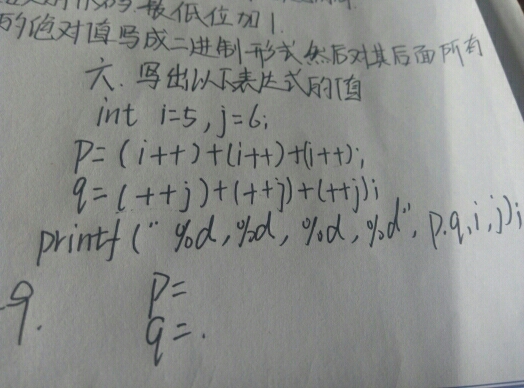 最低位加1.
的绝对值写成二进制形式然后对其后面所有
六.写出以下表达式的值
int i=5,j=6;
p=(i++)+(i++)+(i++);
q=(++j)+(++j)+(++j);
printf("%d,%d,%d,%d",p.q,i,j);
9. p=
q=.